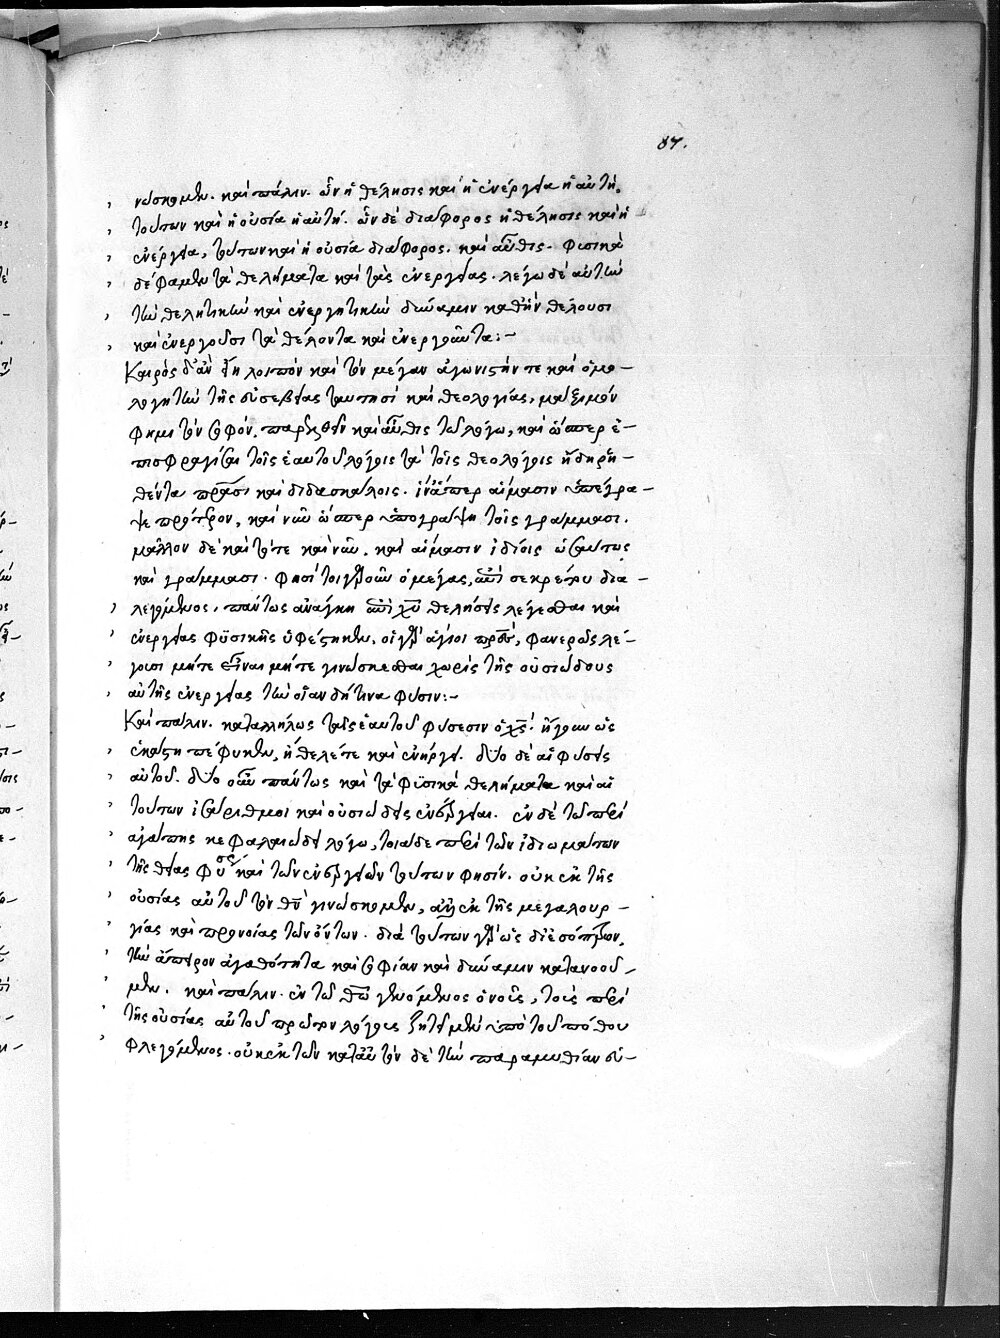 87.
νώσκομεν. καὶ πάλιν. ὧν ἡ θέλησις καὶ ἡ ἐνέργεια ἡ αὐτή,
τούτων καὶ ἡ οὐσία ἡ αὐτή. ὧν δὲ διάφορος ἡ θέλησις καὶ ἡ
ἐνέργεια, τούτων καὶ ἡ οὐσία διάφορος. καὶ αὖθις. φυσικὰ
δέ φαμεν τὰ θελήματα καὶ τὰς ἐνεργείας. λέγω δὲ αὐτὴν
τὴν θελητικὴν καὶ ἐνεργητικὴν δύναμιν καθ' ἣν θέλουσι
καὶ ἐνεργοῦσι τὰ θέλοντα καὶ ἐνεργοῦντα:-
Καιρὸς δ' ἂν εἴη λοιπὸν καὶ τὸν μέγαν ἀγωνιστήν τε καὶ ὁμο-
λογητὴν τῆς εὐσεβείας ταυτησὶ καὶ θεολογίας, μάξιμόν
φημι τὸν σοφόν, παρελθεῖν καὶ αὖθις τῷ λόγω, καὶ ὥσπερ ἐ-
πισφραγίσαι τοῖς ἑαυτοῦ λόγοις τὰ τοῖς θεολόγοις ἤδη ῥη-
θέντα πρᾶσι καὶ διδασκάλοις. ἵν' ἅπερ αἵμασιν ὑπέγρα-
ψε πρότερον, καὶ νῦν ὥσπερ ὑπογράψη τοῖς γράμμασι.
μᾶλλον δὲ καὶ τότε καὶ νῦν, καὶ αἵμασιν ἰδίοις ὡσαύτως
καὶ γράμμασι. φησὶ τοιγαροῦν ὁ μέγας, ἐπὶ σεκρέτου δια-
λεγόμενος, πάντως ἀνάγκη ἐπὶ χυ θελήσεις λέγεσθαι καὶ
ἐνεργείας φυσικῆς ὑφέστηκεν. οἱ γὰρ ἅγιοι πρες, φανερῶς λέ-
γουσι μήτε εἶναι μήτε γινώσκεσθαι χωρὶς τῆς οὐσιώδους
αὐτῆς ἐνεργείας τὴν οἵαν δήτινα φύσιν:-
Καὶ πάλιν. καταλλήλως ταῖς ἑαυτοῦ φύσεσιν ὁ χς ἤγουν ὡς
ἑκάστη πέφυκεν, ἤθελέ τε καὶ ἐνήργει. δύο δὲ αἱ φύσεις
αὐτοῦ. δύο οὖν πάντως καὶ τὰ φυσικὰ θελήματα καὶ αἱ
τούτων ἰσάριθμοι καὶ οὐσιώδεις ἐνέργειαι. ἐν δὲ τῷ περὶ
ἀγάπης κεφαλαιώδει λόγω, τοιάδε περὶ τῶν ἰδιωμάτων
τῆς θείας φύσεως καὶ τῶν ἐνεργειῶν τούτων φησίν. οὐκ ἐκ τῆς
οὐσίας αὐτοῦ τὸν θν γινώσκομεν, ἀλλ' ἐκ τῆς μεγαλουρ-
γίας καὶ προνοίας τῶν ὄντων. διὰ τούτων γὰρ ὡς δι' ἐσόπτρων,
τὴν ἄπειρον ἀγαθότητα καὶ σοφίαν καὶ δύναμιν κατανοοῦ-
μεν. καὶ πάλιν. ἐν τῷ θω γενόμενος ὁ νοῦς, τοὺς περὶ
τῆς οὐσίας αὐτοῦ πρῶτον λόγους ζητεῖ μὲν ὑπὸ τοῦ πόθου
φλεγόμενος. οὐκ ἐκ τῶν κατ' αὐτὸν δὲ τὴν παραμυθίαν εὑ-